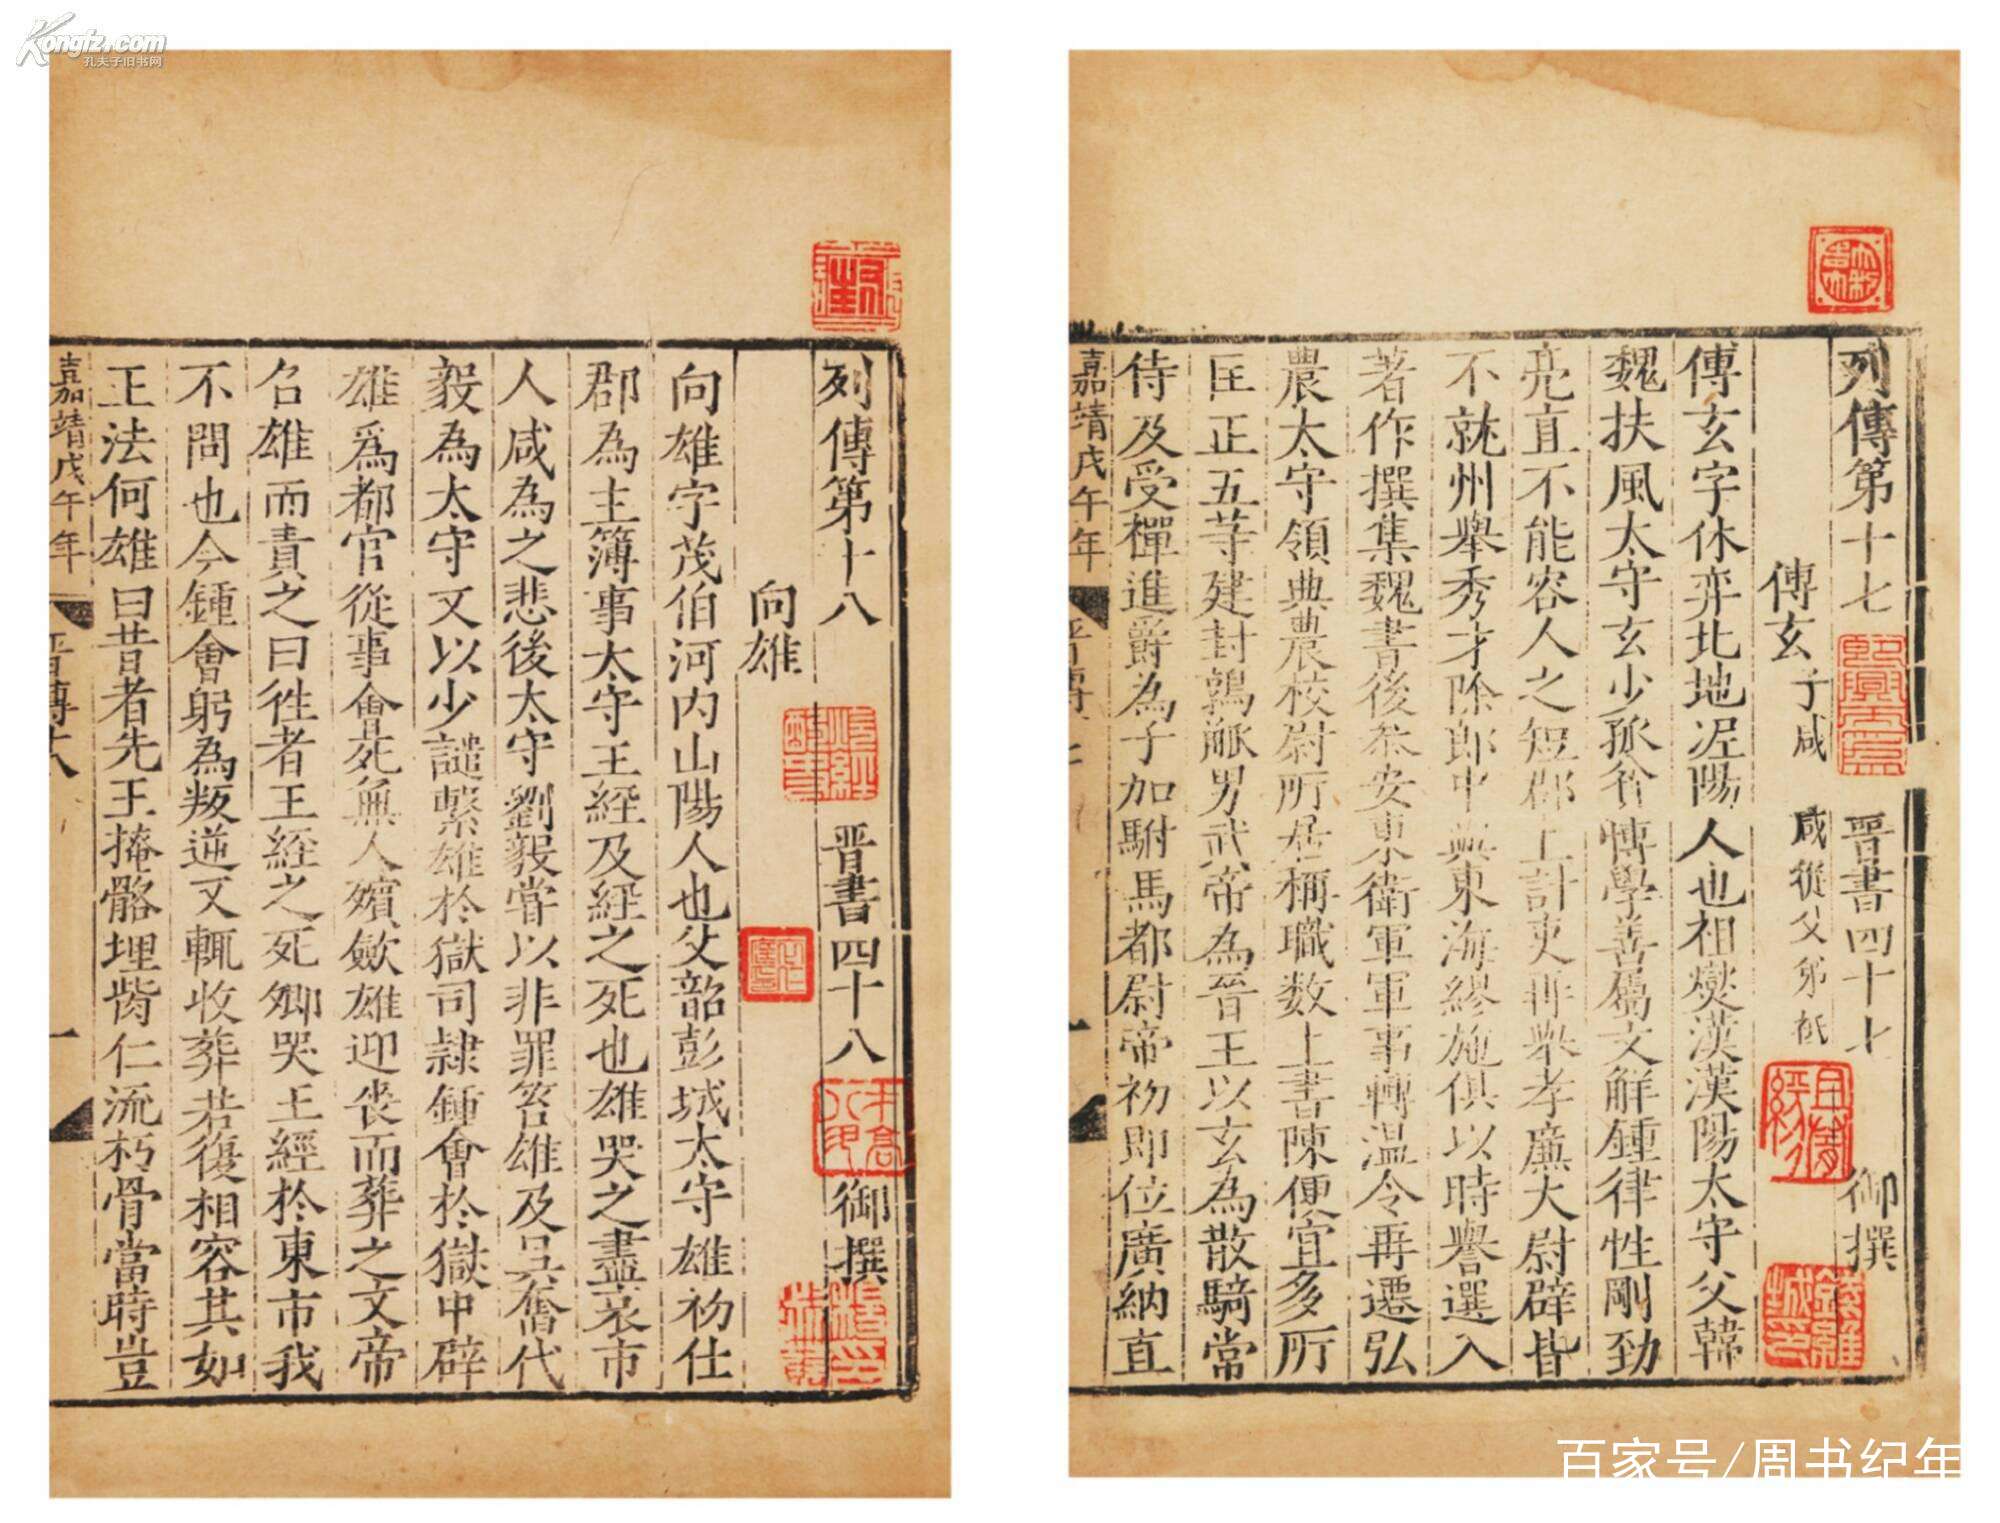 Kongfz.com
孔夫子旧书网
列傳第十七
晉書四十七
御撰
傅玄
子咸
咸從父弟祗
傅玄字休弈北地泥陽人也祖燮漢漢陽太守父韓
魏扶風太守玄少孤咎愽學善屬文解鍾律性剛勁
亮直不能容人之短郡上計吏再舉孝廉大尉辟皆
不就州舉秀才除郎中與東海繆施俱以時譽選入
著作撰集魏書後叅安東衛軍軍事轉温令再遷弘
農太守領典農校尉所居稱職數上書陳便宜多所
匡正五等建封鶉觚男武帝為晉王以玄為散騎常
侍及受禪進爵為子加駙馬都尉帝初即位廣納直
嘉靖戊午年
列傳第十八
晋書四十八
御撰
向雄
向雄字茂伯河内山陽人也父韶彭城太守雄初仕
郡為主簿事太守王經及經之死也雄哭之盡哀市
人咸為之悲後太守劉毅甞以非罪笞雄及吳奮代
毅為太守又以少譴繫雄於獄司隷鍾會於獄中辟
雄爲都官從事會死無人殯斂雄迎喪而葬之文帝
召雄而責之曰徃者王經之死卿哭王經於東市我
不問也今鍾會躬為叛逆又輒收葬若復相容其如
王法何雄曰昔者先王掩骼埋胔仁流朽骨當時豈
嘉靖戊午年
晋傳十八
一
百家号/周书纪年